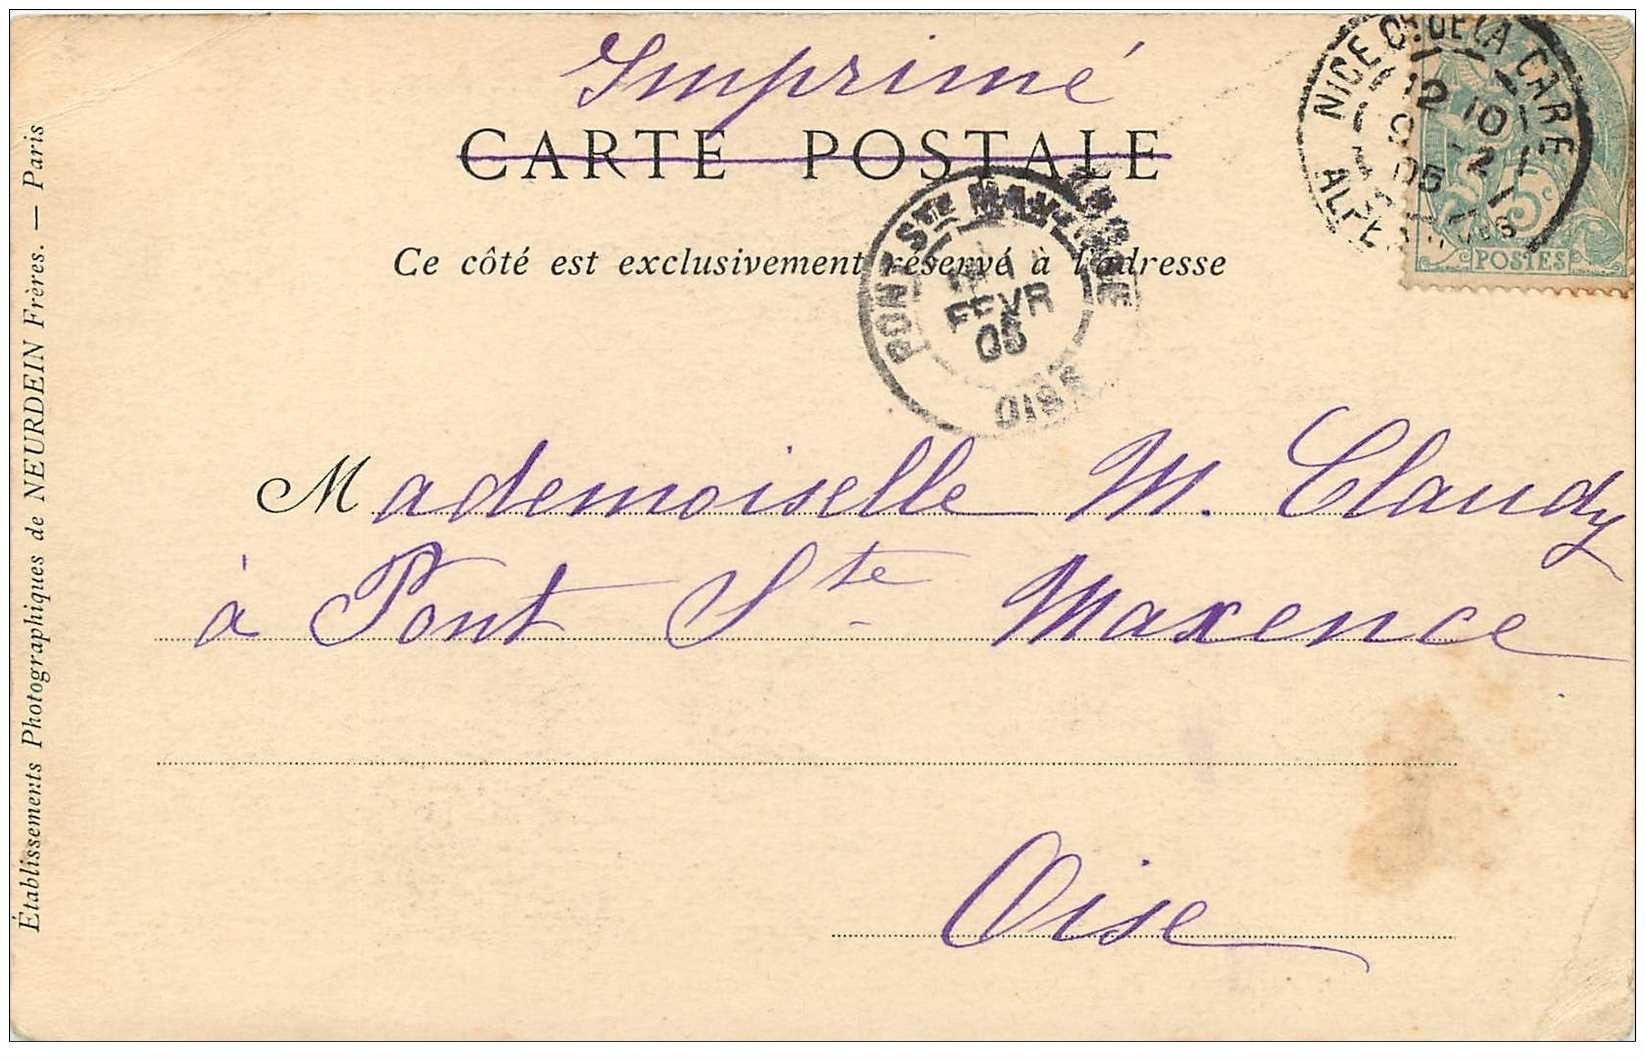 Imprimé
CARTE POSTALE
Ce côté est exclusivement réservé à l'adresse
NICE Cx DE LA GARE
12 10
9 -2
05
ALPES
5
POSTES
PONT STE MAXENCE
FEVR
05
OISE
Mademoiselle M. Claudy
à Pont Ste Maxence
Oise
Établissements Photographiques de NEURDEIN Frères. — Paris